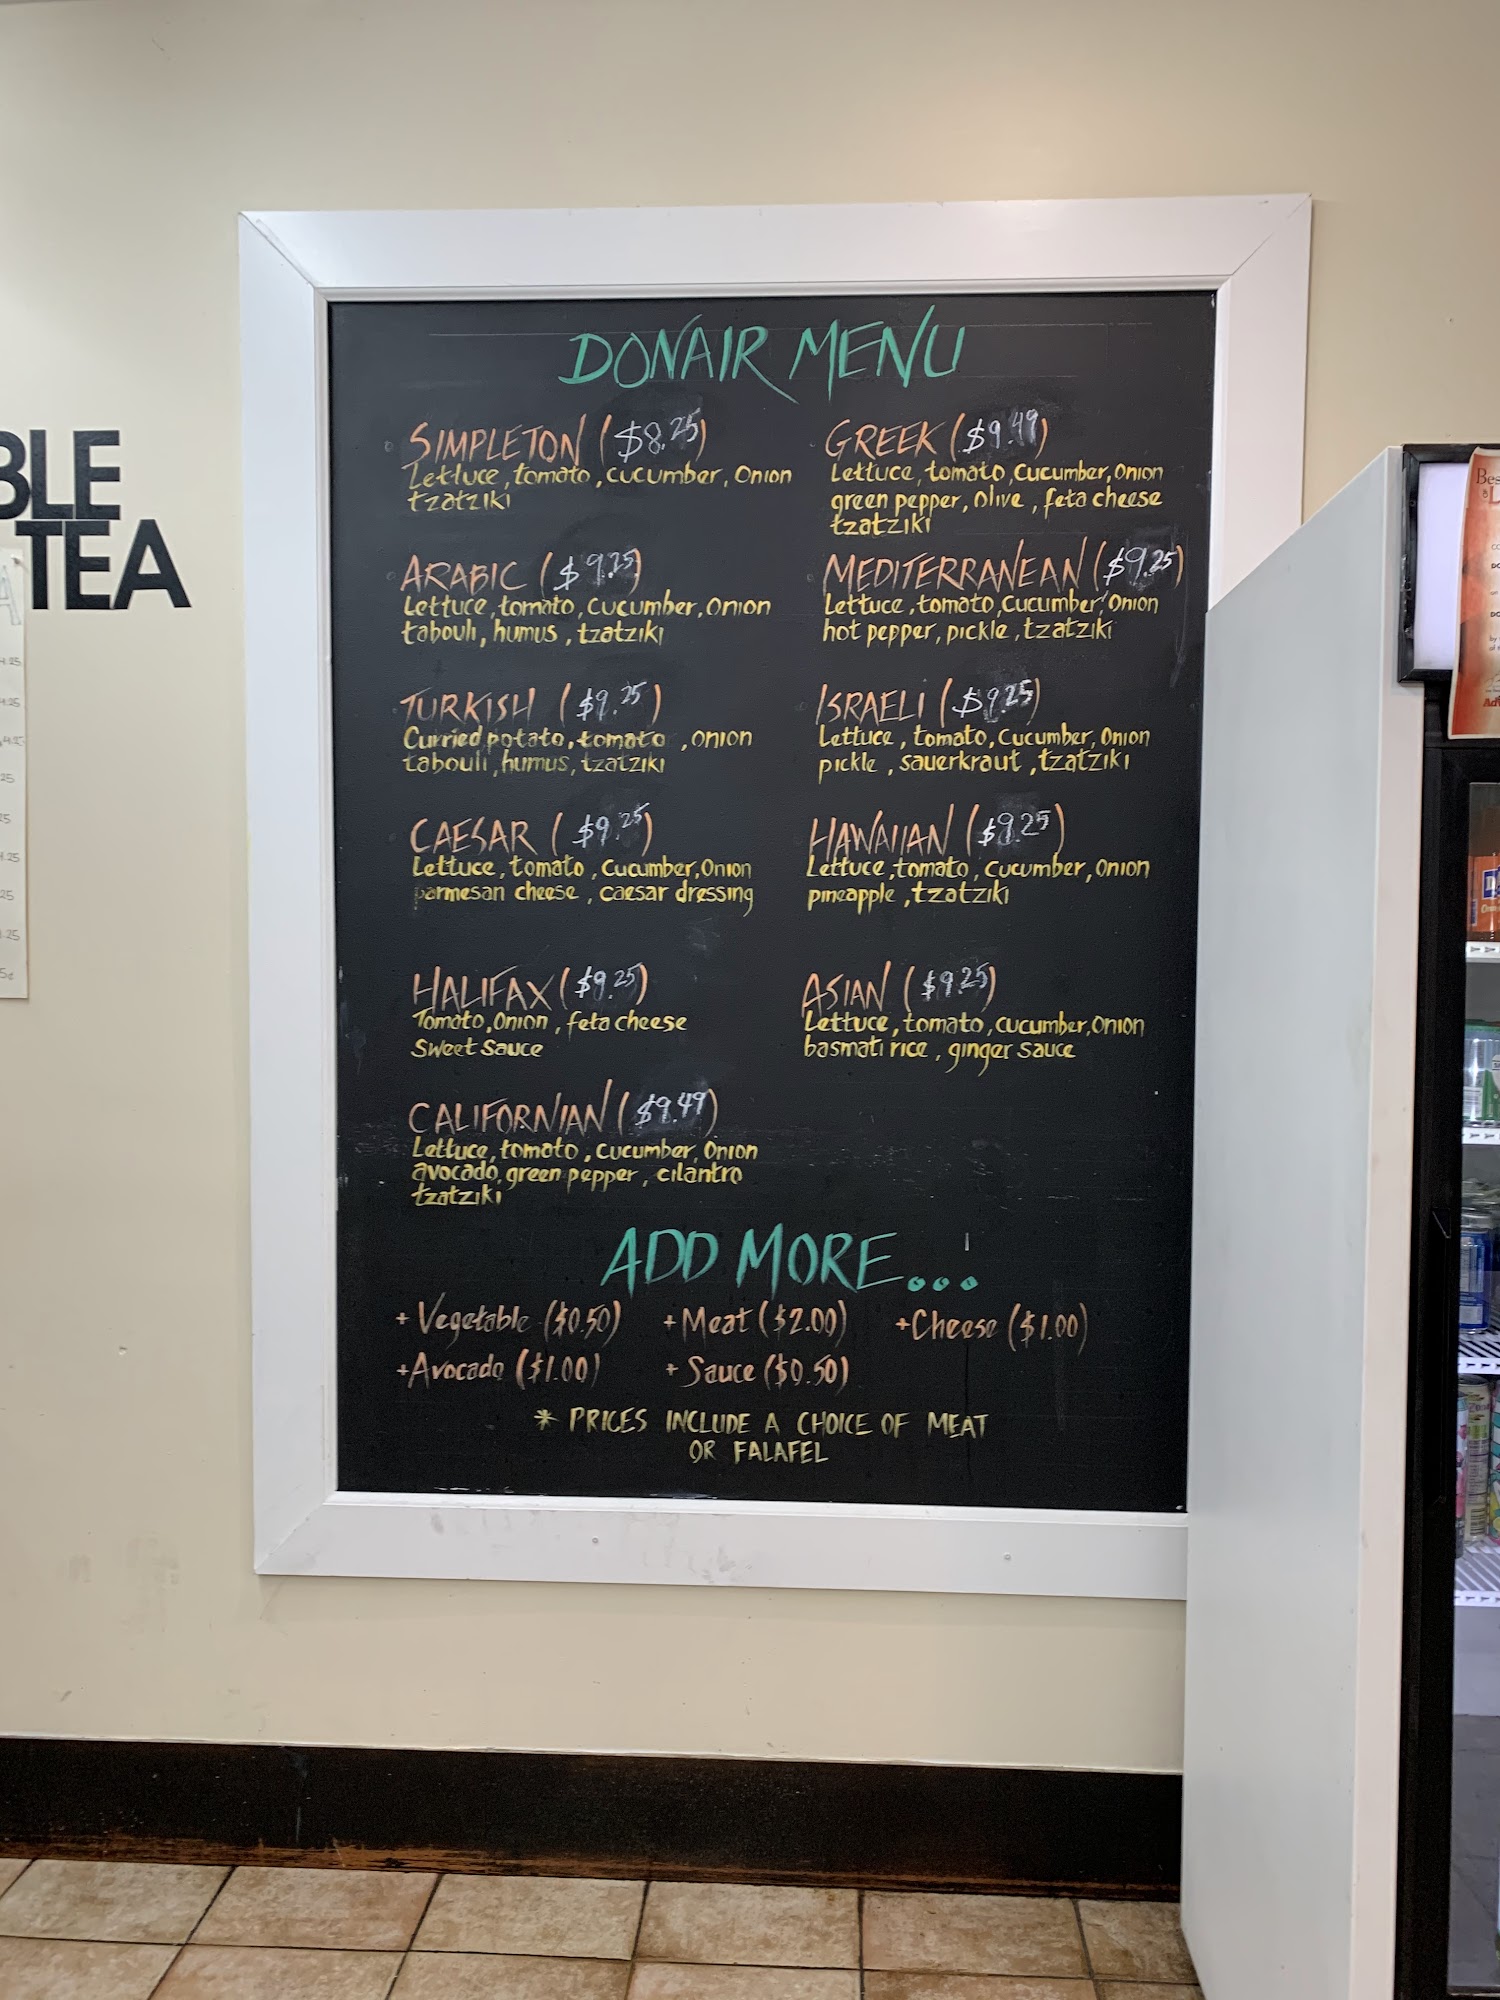 BLE
TEA
DONAIR MENU
SIMPLETON ($8.25)
Lettuce, tomato, cucumber, Onion
tzatziki
GREEK ($9.49)
Lettuce, tomato, cucumber, Onion
green pepper, olive, feta cheese
tzatziki
ARABIC ($9.25)
Lettuce, tomato, cucumber, Onion
tabouli, humus, tzatziki
MEDITERRANEAN ($9.25)
Lettuce, tomato, cucumber, Onion
hot pepper, pickle, tzatziki
TURKISH ($9.25)
Curried potato, tomato, onion
tabouli, humus, tzatziki
ISRAELI ($9.25)
Lettuce, tomato, cucumber, Onion
pickle, sauerkraut, tzatziki
CAESAR ($9.25)
Lettuce, tomato, cucumber, Onion
parmesan cheese, caesar dressing
HAWAIIAN ($9.25)
Lettuce, tomato, cucumber, Onion
pineapple, tzatziki
HALIFAX ($9.25)
Tomato, Onion, feta cheese
Sweet Sauce
ASIAN ($9.25)
Lettuce, tomato, cucumber, Onion
basmati rice, ginger sauce
CALIFORNIAN ($9.49)
Lettuce, tomato, cucumber, Onion
avocado, green pepper, cilantro
tzatziki
ADD MORE...
+ Vegetable ($0.50) + Meat ($2.00) + Cheese ($1.00)
+ Avocado ($1.00) + Sauce ($0.50)
* PRICES INCLUDE A CHOICE OF MEAT
OR FALAFEL